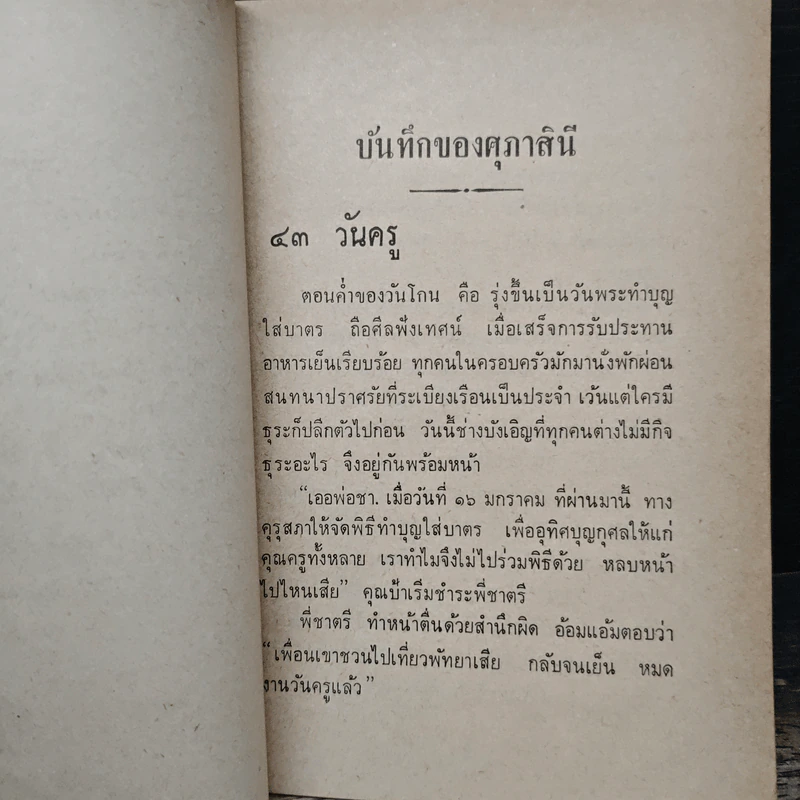 บันทึกของศุภาสินี
๔๓ วันครู
ตอนค่ำของวันโกน คือ รุ่งขึ้นเป็นวันพระทำบุญ
ใส่บาตร ถือศีลฟังเทศน์ เมื่อเสร็จการรับประทาน
อาหารเย็นเรียบร้อย ทุกคนในครอบครัวมักมานั่งพักผ่อน
สนทนาปราศรัยที่ระเบียงเรือนเป็นประจำ เว้นแต่ใครมี
ธุระก็ปลีกตัวไปก่อน วันนี้ช่างบังเอิญที่ทุกคนต่างไม่มีกิจ
ธุระอะไร จึงอยู่กันพร้อมหน้า
“เออพ่อชา. เมื่อวันที่ ๑๖ มกราคม ที่ผ่านมานี้ ทาง
คุรุสภาให้จัดพิธีทำบุญใส่บาตร เพื่ออุทิศบุญกุศลให้แก่
คุณครูทั้งหลาย เราทำไมจึงไม่ไปร่วมพิธีด้วย หลบหน้า
ไปไหนเสีย” คุณป้าเริ่มชำระพี่ชาตรี
พี่ชาตรี ทำหน้าตื่นด้วยสำนึกผิด อ้อมแอ้มตอบว่า
“เพื่อนเขาชวนไปเที่ยวพัทยาเสีย กลับจนเย็น หมด
งานวันครูแล้ว”